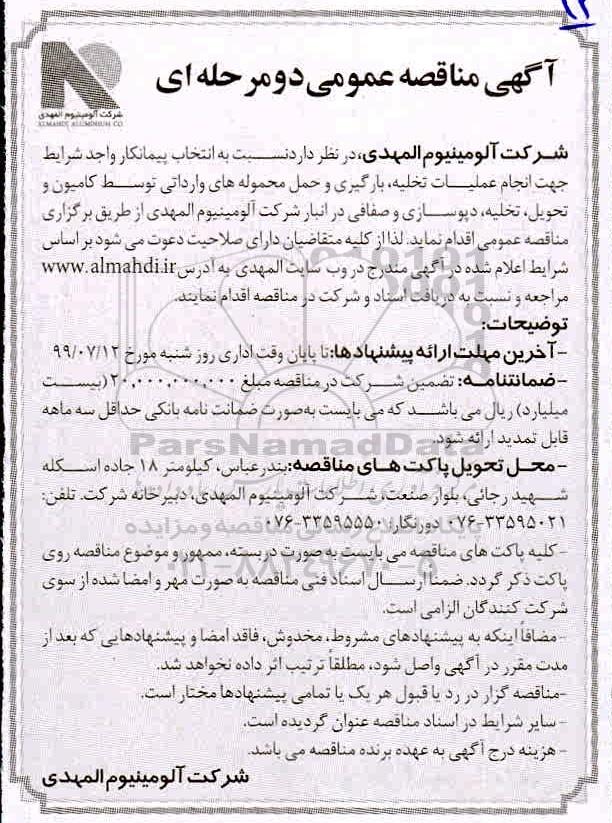 آگهی مناقصه عمومی دو مرحله ای
شرکت آلومینیوم المهدی
ALMAHDI ALUMINIUM CO
شرکت آلومینیوم المهدی، در نظر دارد نسبت به انتخاب پیمانکار واجد شرایط
جهت انجام عملیات تخلیه، بارگیری و حمل محموله های وارداتی توسط کامیون و
تحویل، تخلیه، دپوسازی و صفافی در انبار شرکت آلومینیوم المهدی از طریق برگزاری
مناقصه عمومی اقدام نماید. لذا از کلیه متقاضیان دارای صلاحیت دعوت می شود بر اساس
شرایط اعلام شده در آگهی مندرج در وب سایت المهدی به آدرس www.almahdi.ir
مراجعه و نسبت به دریافت اسناد و شرکت در مناقصه اقدام نمایند.
توضیحات:
-آخرین مهلت ارائه پیشنهادها: تا پایان وقت اداری روز شنبه مورخ ۹۹/۰۷/۱۲
-ضمانتنامه: تضمین شرکت در مناقصه مبلغ ۲۰,۰۰۰,۰۰۰,۰۰۰ (بیست
میلیارد) ریال می باشد که می بایست به‌صورت ضمانت نامه بانکی حداقل سه ماهه
قابل تمدید ارائه شود.
ParsNamadData
-محل تحویل پاکت های مناقصه: بندرعباس، کیلومتر ۱۸ جاده اسکله
شهید رجائی، بلوار صنعت، شرکت آلومینیوم المهدی، دبیرخانه شرکت. تلفن:
۰۷۶-۳۳۵۹۵۰۲۱ دورنگار: ۰۷۶-۳۳۵۹۵۵۵۰
پایگاه اطلاع رسانی مناقصه و مزایده
-کلیه پاکت های مناقصه می بایست به صورت دربسته، ممهور و موضوع مناقصه روی
۰۲۱-۸۸۳۴۹۶۷۰-۵
پاکت ذکر گردد. ضمناً ارسال اسناد فنی مناقصه به صورت مهر و امضا شده از سوی
شرکت کنندگان الزامی است.
-مضافاً اینکه به پیشنهادهای مشروط، مخدوش، فاقد امضا و پیشنهادهایی که بعد از
مدت مقرر در آگهی واصل شود، مطلقاً ترتیب اثر داده نخواهد شد.
-مناقصه گزار در رد یا قبول هر یک یا تمامی پیشنهادها مختار است.
-سایر شرایط در اسناد مناقصه عنوان گردیده است.
-هزینه درج آگهی به عهده برنده مناقصه می باشد.
شرکت آلومینیوم المهدی